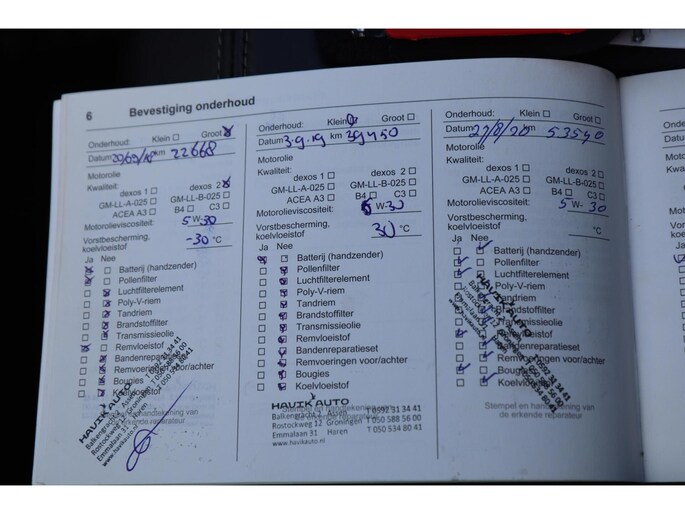 6 Bevestiging onderhoud
Onderhoud: Klein Groot
Datum km 22668
Motorolie
Kwaliteit:
dexos 1 dexos 2
GM-LL-A-025 GM-LL-B-025
ACEA A3 B4 C3
Motorolieviscositeit: 5 W-30
Vorstbescherming,
koelvloeistof -30 °C
Ja Nee
Batterij (handzender)
Pollenfilter
Luchtfilterelement
Poly-V-riem
Tandriem
Brandstoffilter
Transmissieolie
Remvloeistof
Bandenreparatieset
Remvoeringen voor/achter
Bougies
Koelvloeistof
HAVIK AUTO
Stempel en handtekening van
de erkende reparateur
Emmalaan 31 Haren
www.havikauto.nl
Onderhoud: Klein Groot
Datum 3.9.19 km 39450
Motorolie
Kwaliteit:
dexos 1 dexos 2
GM-LL-A-025 GM-LL-B-025
ACEA A3 B4 C3
Motorolieviscositeit: 5 W-30
Vorstbescherming,
koelvloeistof 30 °C
Ja Nee
Batterij (handzender)
Pollenfilter
Luchtfilterelement
Poly-V-riem
Tandriem
Brandstoffilter
Transmissieolie
Remvloeistof
Bandenreparatieset
Remvoeringen voor/achter
Bougies
Koelvloeistof
HAVIK AUTO
Stempel en handtekening van
de erkende reparateur
Balkengracht 1 Assen T 0592 31 34 41
Rostockweg 12 Groningen T 050 588 56 00
Emmalaan 31 Haren T 050 534 80 41
www.havikauto.nl
Onderhoud: Klein Groot
Datum 27/8/20 km 53540
Motorolie
Kwaliteit:
dexos 1 dexos 2
GM-LL-A-025 GM-LL-B-025
ACEA A3 B4 C3
Motorolieviscositeit: 5 W-30
Vorstbescherming,
koelvloeistof °C
Ja Nee
Batterij (handzender)
Pollenfilter
Luchtfilterelement
Poly-V-riem
Tandriem
Brandstoffilter
Transmissieolie
Remvloeistof
Bandenreparatieset
Remvoeringen voor/achter
Bougies
Koelvloeistof
Stempel en handtekening van
de erkende reparateur